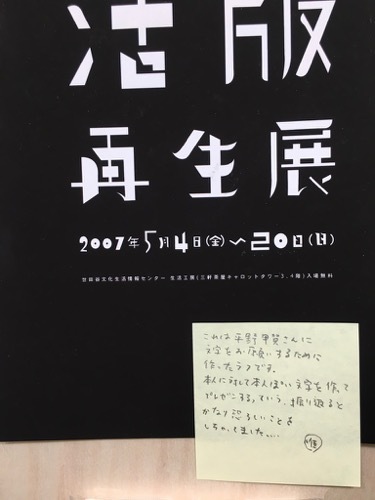 活版
再生展
2007年5月4日(金)〜20日(日)
世田谷文化生活情報センター 生活工房(三軒茶屋キャロットタワー3、4階)入場無料
これは平野甲賀さんに
文字をお願いするために
作ったラフです。
本人に対して本人ぽい文字を作って
プレゼンする、という、振り返ると
かなり恐ろしいことを
しちゃいました…